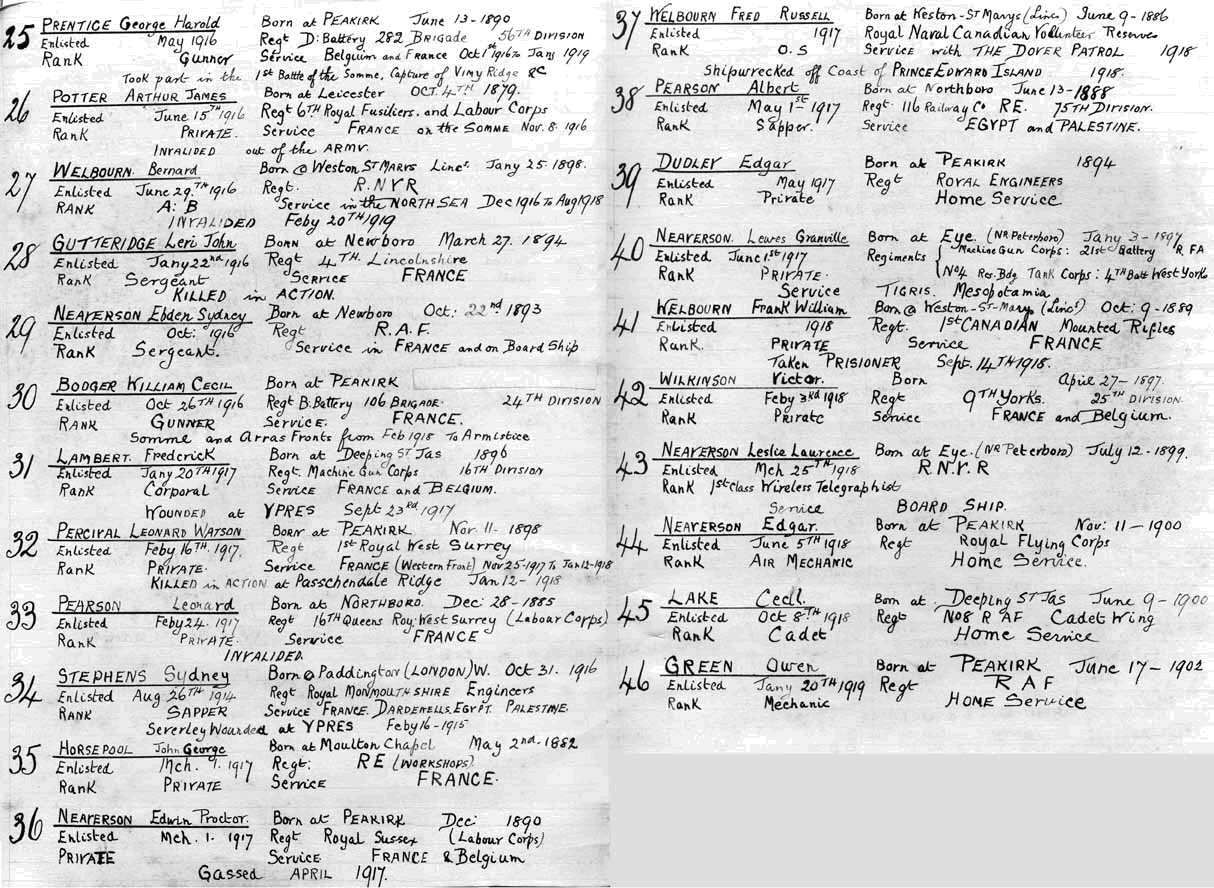 25 PRENTICE George Harold Born at PEAKIRK June 13-1890
Enlisted May 1916 Regt D: Battery 282 BRIGADE 56TH DIVISION
Rank Gunner Service Belgium and France Oct 1st 1916 To Jany 1919
Took part in the 1st Battle of the Somme, Capture of Vimy Ridge &C
26 POTTER ARTHUR JAMES Born at Leicester OCT. 4TH 1879.
Enlisted June 15TH 1916 Regt 6TH Royal Fusiliers. and Labour Corps
Rank PRIVATE. Service FRANCE on the SOMME Nov. 8. 1916
INVALIDED out of the ARMY.
27 WELBOURN. Bernard Born @ Weston ST MARYS Lincs. Jany 25. 1898.
Enlisted June 29.TH 1916 Regt. R.N.V.R
RANK A: B Service in the NORTH SEA Dec 1916 to Aug 1918
INVALIDED Feby 20TH 1919
28 GUTTERIDGE Leri John Born at Newboro March 27. 1894
Enlisted Jany 22nd 1916 Regt 4TH. Lincolnshire
Rank Sergeant SERVICE FRANCE
KILLED in ACTION.
29 NEAVERSON Ebden Sydney Born at Newboro Oct: 22nd 1893
Enlisted Oct: 1916 Regt R.A.F.
Rank Sergeant. Service in FRANCE and on Board Ship
30 BODGER WILLIAM CECIL Born at PEAKIRK
Enlisted Oct 26TH 1916 Regt B. Battery 106 BRIGADE. 24TH DIVISION
RANK GUNNER SERVICE. FRANCE.
Somme and Arras Fronts from Feb 1918 To Armistice
31 LAMBERT. Frederick Born at Deeping ST Jas 1896
Enlisted Jany 20TH 1917 Regt. Machine Gun Corps 16TH DIVISION
Rank Corporal Service FRANCE and BELGIUM.
WOUNDED at YPRES Sept 23rd 1917
32 PERCIVAL LEONARD WATSON BORN at PEAKIRK Nov. 11- 1898
Enlisted Feby 16TH. 1917. Regt 1st Royal West Surrey
Rank PRIVATE. Service FRANCE (Western Front) Nov 25-1917 To Jan 12-1918
KILLED in ACTION at Passchendale Ridge Jan 12- 1918
33 PEARSON Leonard Born at NORTHBORO. Dec: 28-1885
Enlisted Feby 24. 1917 Regt 16TH Queens Roy: West Surrey (Labour Corps)
Rank PRIVATE. Service FRANCE
INVALIDED.
34 STEPHENS Sydney Born @ Paddington (LONDON) W. Oct 31. 1916
Enlisted Aug 26TH 1914 Regt Royal MONMOUTHSHIRE Engineers
RANK SAPPER Service FRANCE. DARDENELLS. EGYPT. PALESTINE.
Severley Wounded at YPRES Feby 16-1915
35 HORSEPOOL John George Born at Moulton Chapel May 2nd. 1882
Enlisted Mch. 9. 1917 Regt: RE (WORKSHOPS)
Rank PRIVATE Service FRANCE.
36 NEAVERSON Edwin Proctor. Born at PEAKIRK Dec: 1890
Enlisted Mch. 1. 1917 Regt Royal Sussex (Labour Corps)
PRIVATE Service FRANCE & Belgium
Gassed APRIL 1917.
37 WELBOURN FRED RUSSELL Born at Weston-ST Marys (Lincs) June 9-1886
Enlisted 1917 Royal Naval Canadian Volunteer Reserves
Rank O.S Service with THE DOVER PATROL 1918
Shipwrecked off Coast of PRINCE EDWARD ISLAND 1918.
38 PEARSON Albert Born at Northboro June 13-1888
Enlisted May 1ST 1917 Regt. 116 Railway Co RE. 75TH DIVISION.
Rank Sapper. Service EGYPT and PALESTINE.
39 DUDLEY Edgar Born at PEAKIRK 1894
Enlisted May 1917 Regt ROYAL ENGINEERS
Rank Private Home Service
40 NEAVERSON. Lewes Granville Born at Eye. (NR Peterboro) Jany 3-1897
Enlisted June 1st 1917 Regiments Machine Gun Corps: 21st Battery R.FA
Rank PRIVATE. No4 Res. Bdg Tank Corps: 4TH Batt West Yorks
Service TIGRIS. Mesopotamia
41 WELBOURN Frank William Born @ Weston-ST-Marys (Lincs) Oct: 9-1889
Enlisted 1918 Regt. 1st CANADIAN Mounted Rifles
Rank. PRIVATE Service FRANCE
Taken PRISIONER Sept. 14TH 1918.
42 WILKINSON Victor. Born April 27-1897.
Enlisted Feby 3rd 1918 Regt 9TH Yorks. 25TH DIVISION.
Rank Private Service FRANCE and Belgium.
43 NEAVERSON Leslie Laurence Born at Eye. (NR Peterboro) July 12-1899.
Enlisted Mch 25TH 1918 R.N.V.R
Rank 1st Class Wireless Telegraphist
Service BOARD SHIP.
44 NEAVERSON Edgar. Born at PEAKIRK Nov: 11-1900
Enlisted June 5TH 1918 Regt Royal Flying Corps
Rank AIR MECHANIC Home Service.
45 LAKE Cecil. Born at Deeping ST Jas June 9-1900
Enlisted Oct 8TH 1918 Regt No8 R AF Cadet Wing
Rank Cadet Home Service
46 GREEN Owen Born at PEAKIRK June 17-1902
Enlisted Jany 20TH 1919 Regt R A F
Rank Mechanic HOME SERVICE